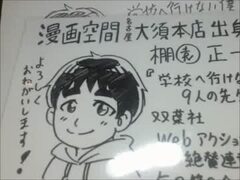 学校へ行けない僕
漫画空間 名古屋 大須本店出身
棚園正一
『学校へ行けない
9人の先
双葉社
Webアクショ
絶賛連
よろしく
おねがいします!